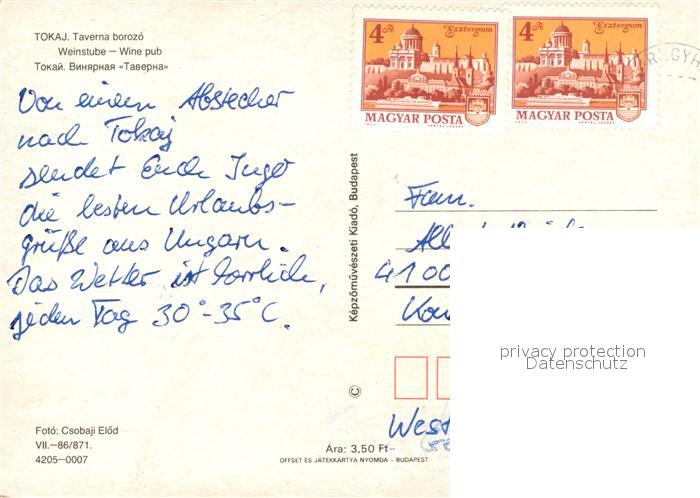 TOKAJ. Taverna borozó
Weinstube — Wine pub
Токай. Винярная «Таверна»
Von einem Abstecher
nach Tokaj
sendet Euch Ingo
die besten Urlaubs-
grüße aus Ungarn.
Das Wetter ist herrlich,
jeden Tag 30°-35°C.
Fotó: Csobaji Előd
VII.—86/871.
4205—0007
Képzőművészeti Kiadó, Budapest
©
Ára: 3,50 Ft
OFFSET ES JÁTÉKKÁRTYA NYOMDA - BUDAPEST
4 Ft
Esztergom
MAGYAR POSTA
4 Ft
Esztergom
MAGYAR POSTA
Fam.
4100
West
privacy protection
Datenschutz